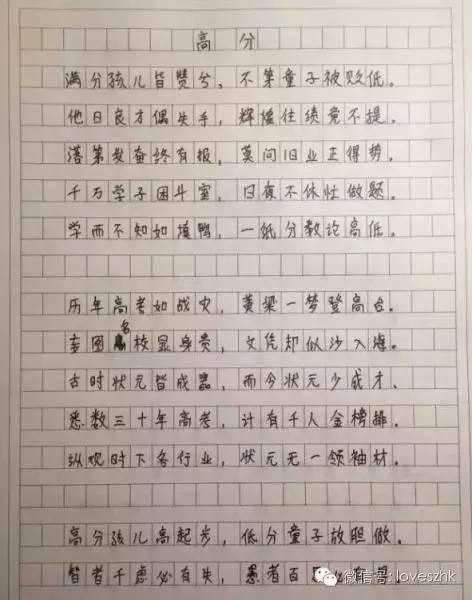 高分
满分孩儿皆赞兮，不第童子被贬低。
他日良才偶失手，辉煌往绩竟不提。
落第发奋终有报，莫问旧业正得势。
千万学子困斗室，日夜不休忙做题。
学而不知如填鸭，一纸分数论高低。
历年高考如战灾，黄梁一梦登高台。
妄图名校显身贵，文凭却似沙入海。
古时状元皆成器，而今状元少成才。
悉数三十年高考，计有千人金榜排。
纵观时下各行业，状元无一领袖材。
高分孩儿高起步，低分童子放胆做。
智者千虑必有失，愚者百
微信号: loveszhk